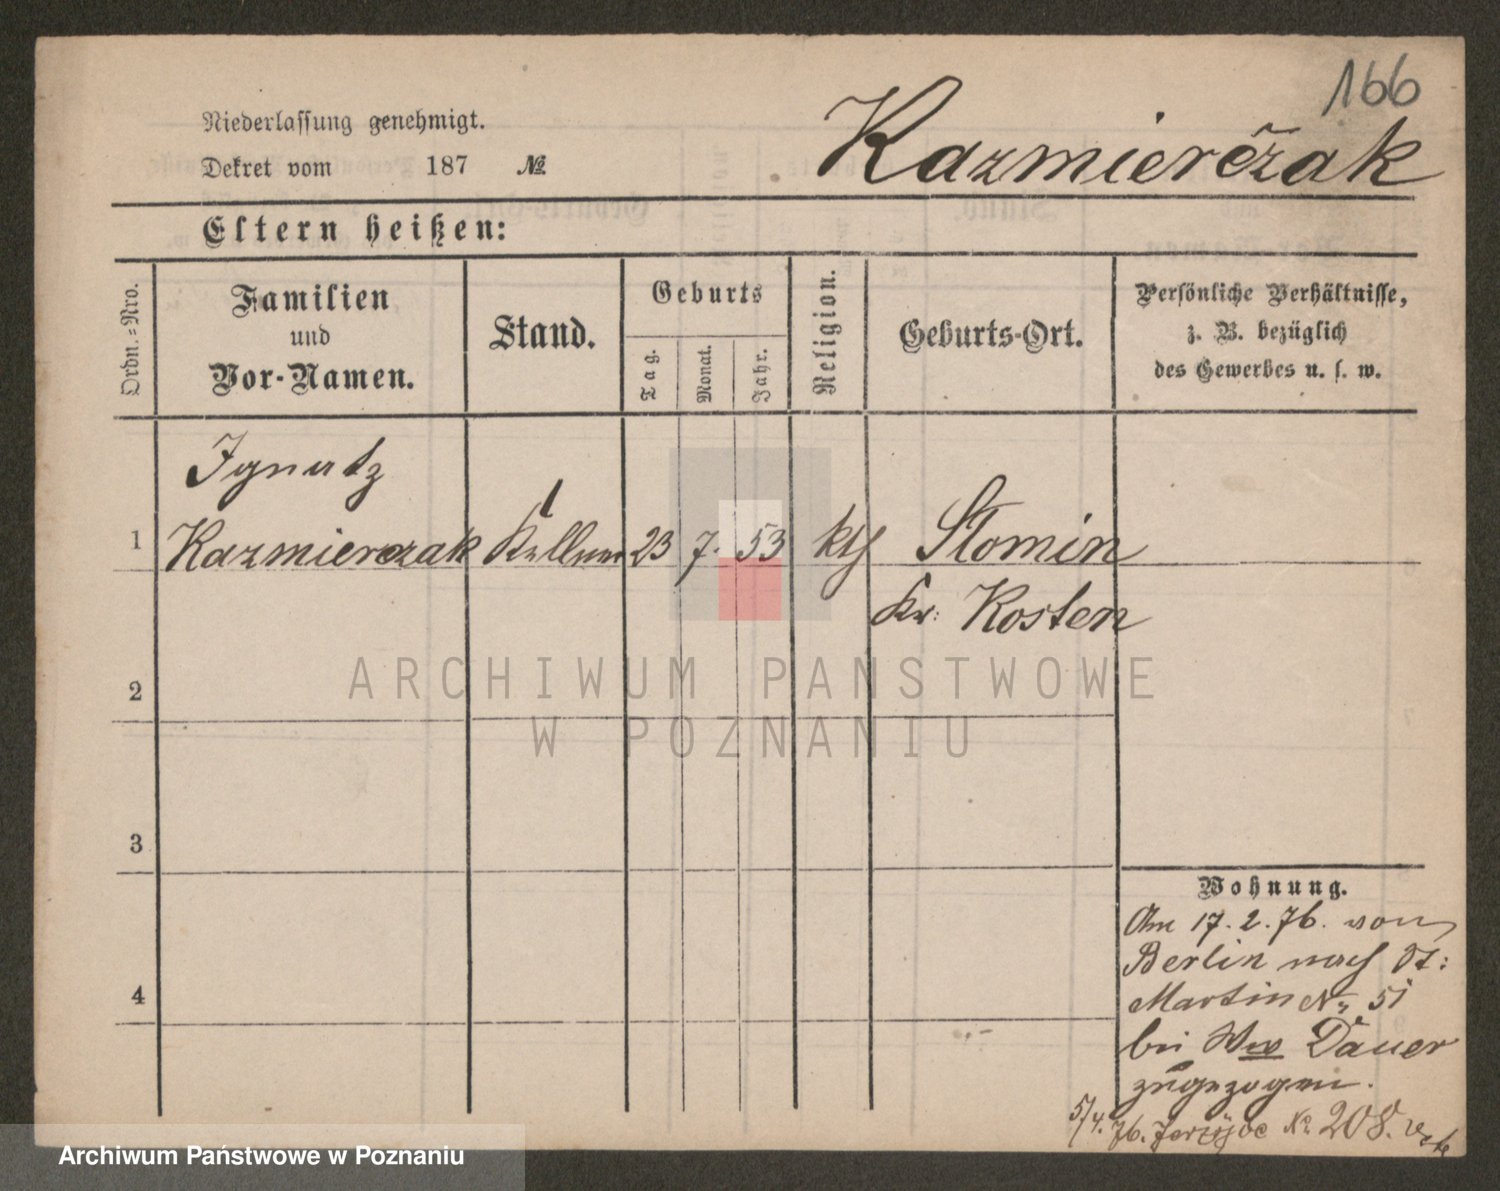 166
Niederlassung genehmigt.
Dekret vom 187 №
Kazmierczak
Eltern heißen:
Ordn.-Nro.
Familien
und
Vor-Namen.
Stand.
Geburts
Tag.
Monat.
Jahr.
Religion.
Geburts-Ort.
Persönliche Verhältnisse,
z. B. bezüglich
des Gewerbes u. s. w.
Ignatz
1 Kazmierczak Kellner 23 7. 53 kth Slonin
Kr: Kosten
2
3
4
Wohnung.
Am 17.2.76. von
Berlin nach St:
Martin № 51
bei Ww Dauer
zugezogen.
5/4. 76. № 208.
ARCHIWUM PAŃSTWOWE
W POZNANIU
Archiwum Państwowe w Poznaniu